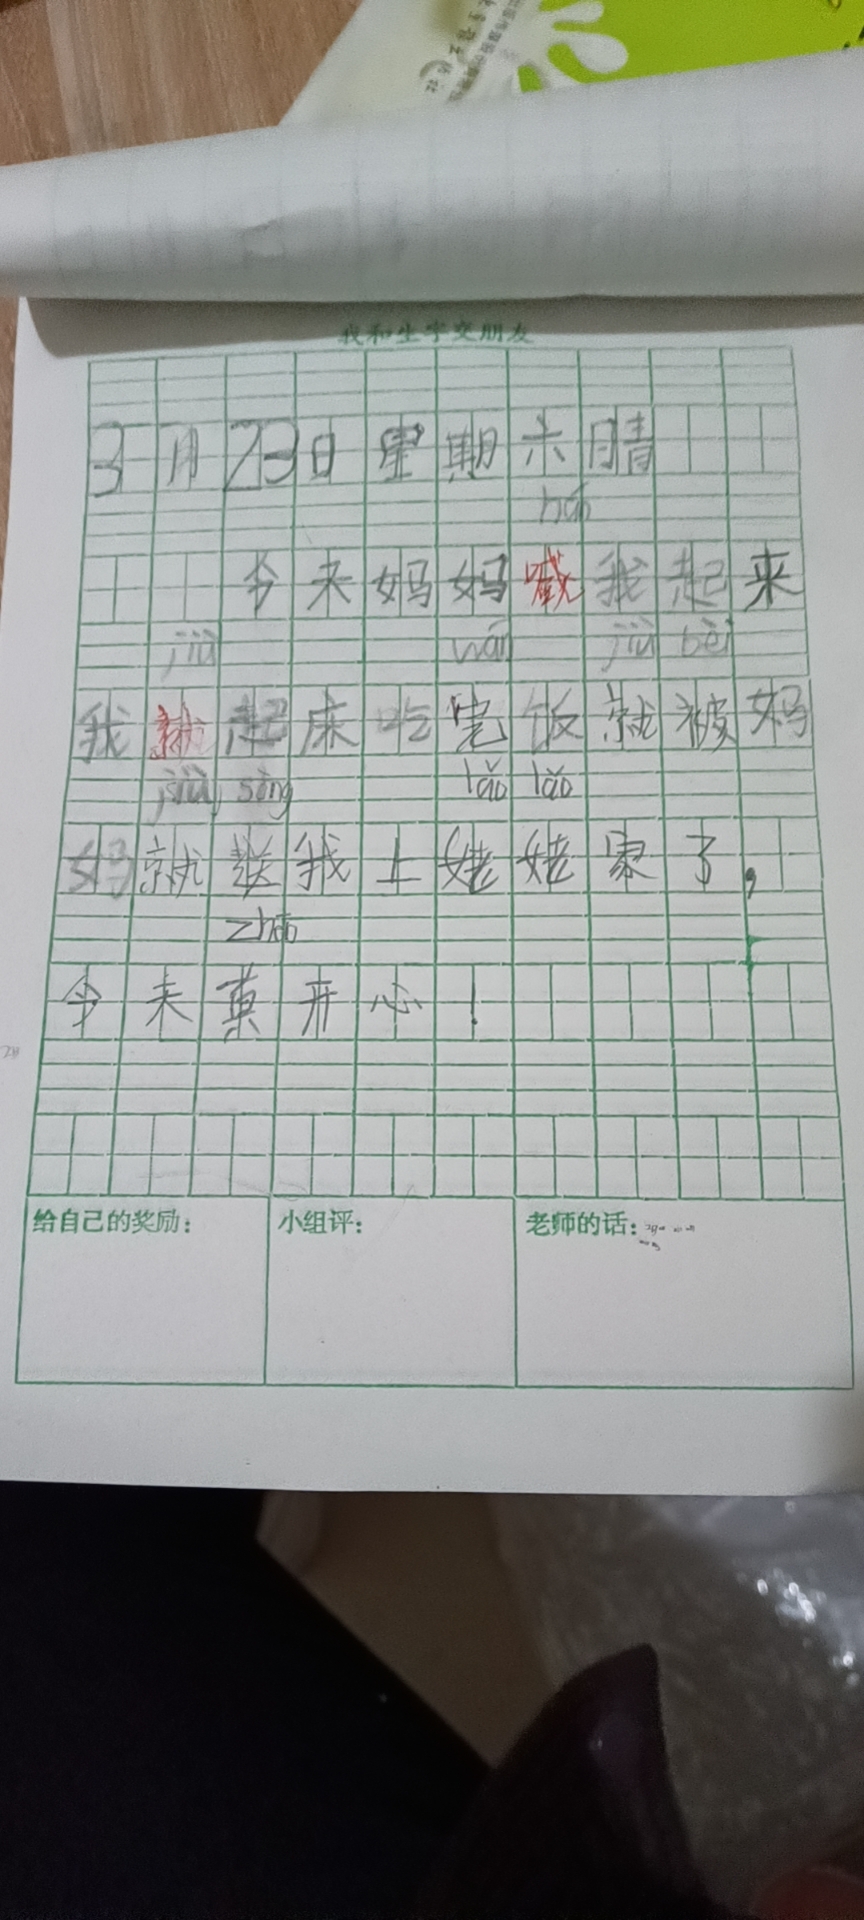 我和生字交朋友
3月23日星期六晴
hǎn
今天妈妈喊我起来
jiù wán jiù bèi
我就起床吃完饭就被妈
jiù sòng lǎo lǎo
妈就送我上姥姥家了,
zhēn
今天真开心!
给自己的奖励:
小组评:
老师的话: